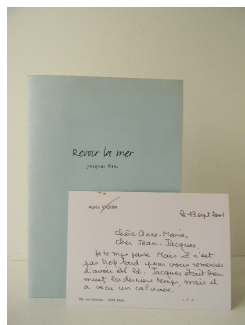 Revoir la mer
Jacques
le 13 sept 2001
Chère Anne-Marie,
cher Jean-Jacques,
le temps passe Mais il n'est
pas trop tard pour vous remercier
d'avoir été là. Jacques était bien
muet les derniers temps, mais il
a vécu un calvaire.